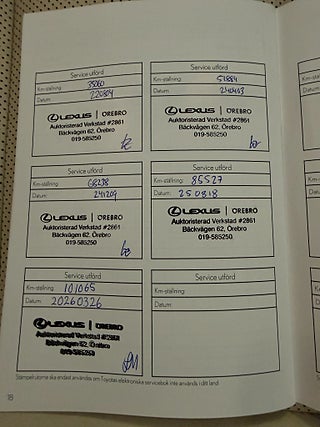 Service utförd
Km-ställning: 35060
Datum: 220804
LEXUS | ÖREBRO
Auktoriserad Verkstad #2861
Bäckvägen 62, Örebro
019-585250
Service utförd
Km-ställning: 51884
Datum: 240403
LEXUS | ÖREBRO
Auktoriserad Verkstad #2861
Bäckvägen 62, Örebro
019-585250
Service utförd
Km-ställning: 68238
Datum: 241209
LEXUS | ÖREBRO
Auktoriserad Verkstad #2861
Bäckvägen 62, Örebro
019-585250
Service utförd
Km-ställning: 85527
Datum: 250818
LEXUS | ÖREBRO
Auktoriserad Verkstad #2861
Bäckvägen 62, Örebro
019-585250
Service utförd
Km-ställning: 101065
Datum: 20260326
LEXUS | ÖREBRO
Auktoriserad Verkstad #2861
Bäckvägen 62, Örebro
019-585250
Service utförd
Km-ställning:
Datum:
Stämpelrutorna ska endast användas om Toyotas elektroniska servicebok inte används i ditt land
18